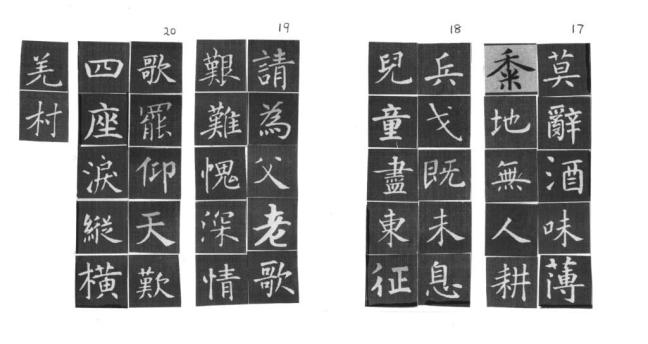 17
莫辭酒味薄
黍地無人耕
18
兵戈既未息
兒童盡東征
19
請為父老歌
艱難愧深情
20
歌罷仰天歎
四座淚縱橫
羌村